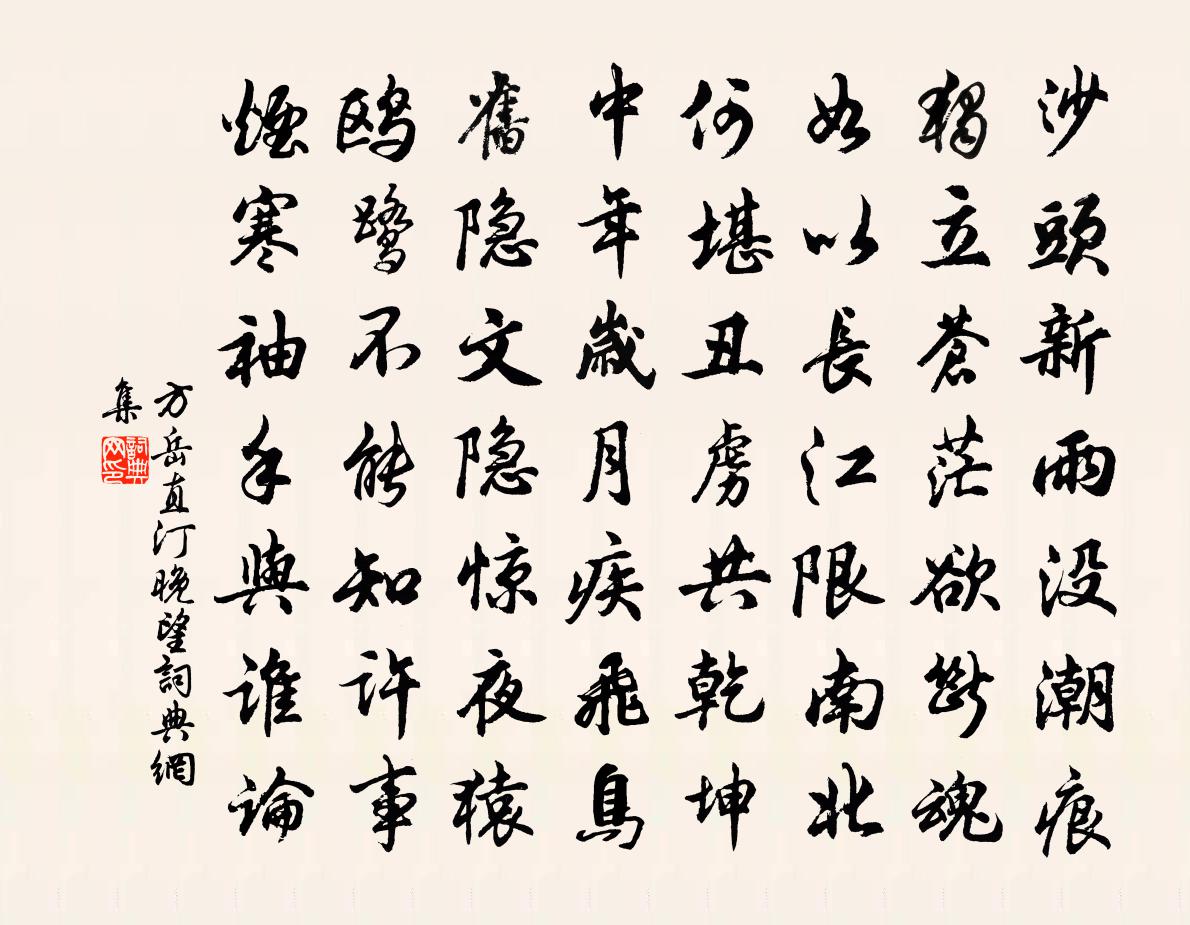 沙頭新雨没潮痕
獨立蒼茫欲斷魂
如以長江限南北
何堪丑虜共乾坤
中年歲月疾飛鳥
舊隐文隐惊夜猿
鸥鹭不能知许事
煙寒袖手與谁論
方岳直汀晚望詞典網
集
詞典網印